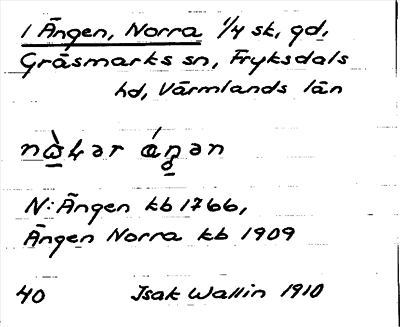 1 Ängen, Norra 1/4 sk, gd,
Gräsmarks sn, Fryksdals
hd, Värmlands län
N: Ängen kb 1766,
Ängen Norra kb 1909
40 Isak Wallin 1910